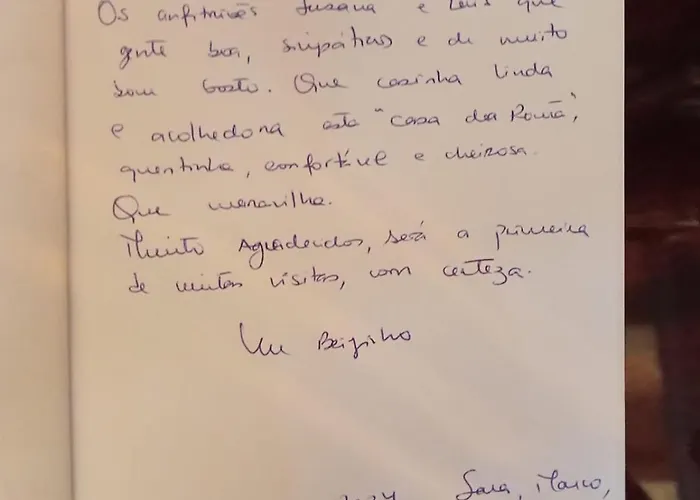 Os anfitriões Susana e Luís que
gente boa, simpáticos e de muito
bom gosto. Que casinha linda
e acolhedora esta "casa da Romã",
quentinha, confortável e cheirosa.
Que maravilha.
Muito Agradecidos, será a primeira
de muitas visitas, com certeza.
Um Beijinho
Sara, Marco,